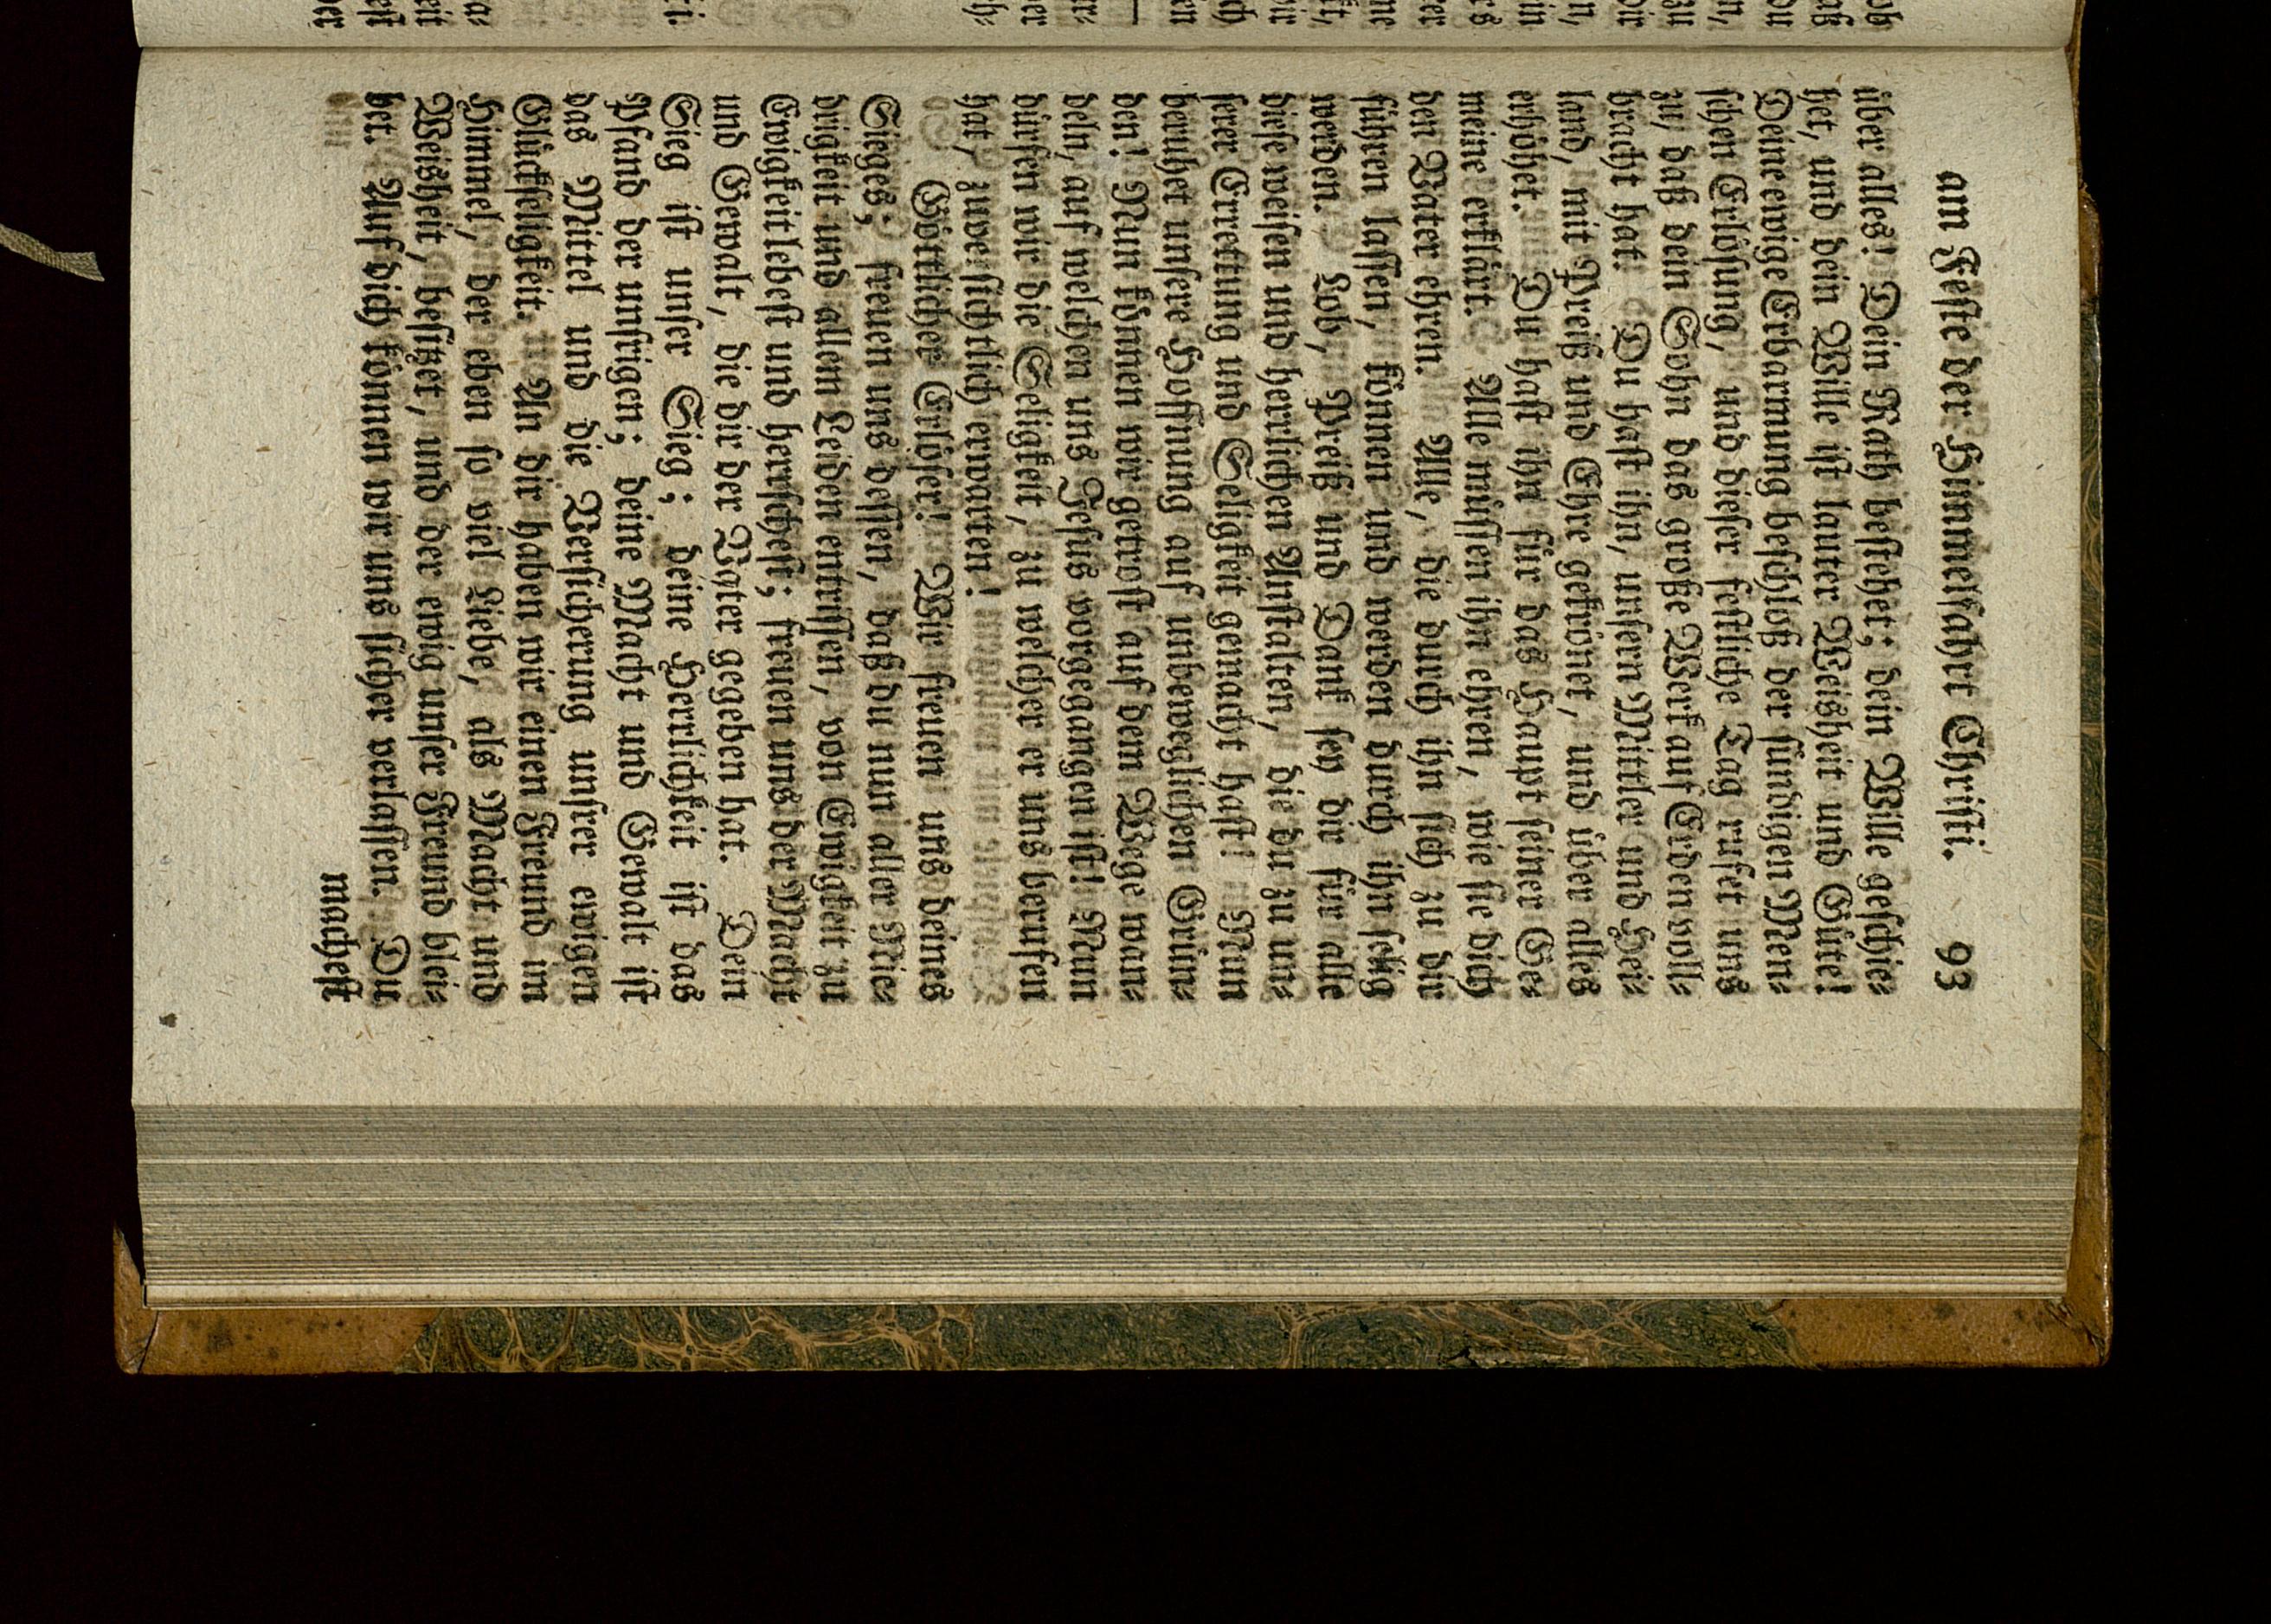 am Feſte der Himmelfahrt Chriſti. 93
über alles! Dein Rath beſtehet; dein Wille geſchie⸗
het, und dein Wille iſt lauter Weisheit und Güte!
Deine ewige Erbarmung beſchloß der ſündigen Men⸗
ſchen Erlöſung, und dieſer feſtliche Tag rufet uns
zu, daß dein Sohn das große Werk auf Erden voll⸗
bracht hat. Du haſt ihn, unſern Mittler und Hei⸗
land, mit Preiß und Ehre gekrönet, und über alles
erhöhet. Du haſt ihn für das Haupt ſeiner Ge⸗
meine erklärt. Alle müſſen ihn ehren, wie ſie dich
den Vater ehren. Alle, die durch ihn ſich zu dir
führen laſſen, können und werden durch ihn ſelig
werden. Lob, Preiß und Dank ſey dir für alle
dieſe weiſen und herrlichen Anſtalten, die du zu un⸗
ſerer Errettung und Seligkeit gemacht haſt! Nun
beruhet unſere Hoffnung auf unbeweglichen Grün⸗
den! Nun können wir getroſt auf dem Wege wan⸗
deln, auf welchen uns Jeſus vorgegangen iſt! Nun
dürfen wir die Seligkeit, zu welcher er uns berufen
hat, zuverſichtlich erwarten!
Göttlicher Erlöſer! Wir freuen uns deines
Sieges; freuen uns deſſen, daß du nun aller Nie⸗
drigkeit und allem Leiden entriſſen, von Ewigkeit zu
Ewigkeit lebeſt und herrſcheſt; freuen uns der Macht
und Gewalt, die dir der Vater gegeben hat. Dein
Sieg iſt unſer Sieg; deine Herrlichkeit iſt das
Pfand der unſrigen; deine Macht und Gewalt iſt
das Mittel und die Verſicherung unſrer ewigen
Glückſeligkeit. An dir haben wir einen Freund im
Himmel, der eben ſo viel Liebe, als Macht und
Weisheit, beſitzet, und der ewig unſer Freund blei⸗
bet. Auf dich können wir uns ſicher verlaſſen. Du
macheſt